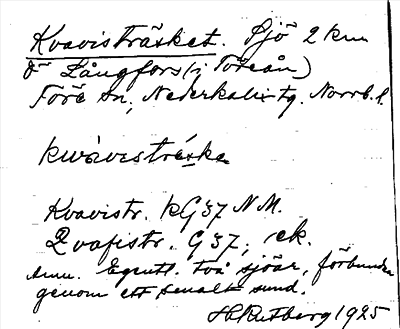 Kvavisträsket. Sjö 2 km
Ö Långfors (i Töreån)
Töre sn, Nederkalix tg. Norrb. l.
kwàvisträska
Kvavistr. kG 37 NM.
Qvafistr. G 37, ek.
Anm. Egentl. två sjöar, förbundna
genom ett smalt sund.
H Rutberg 1925